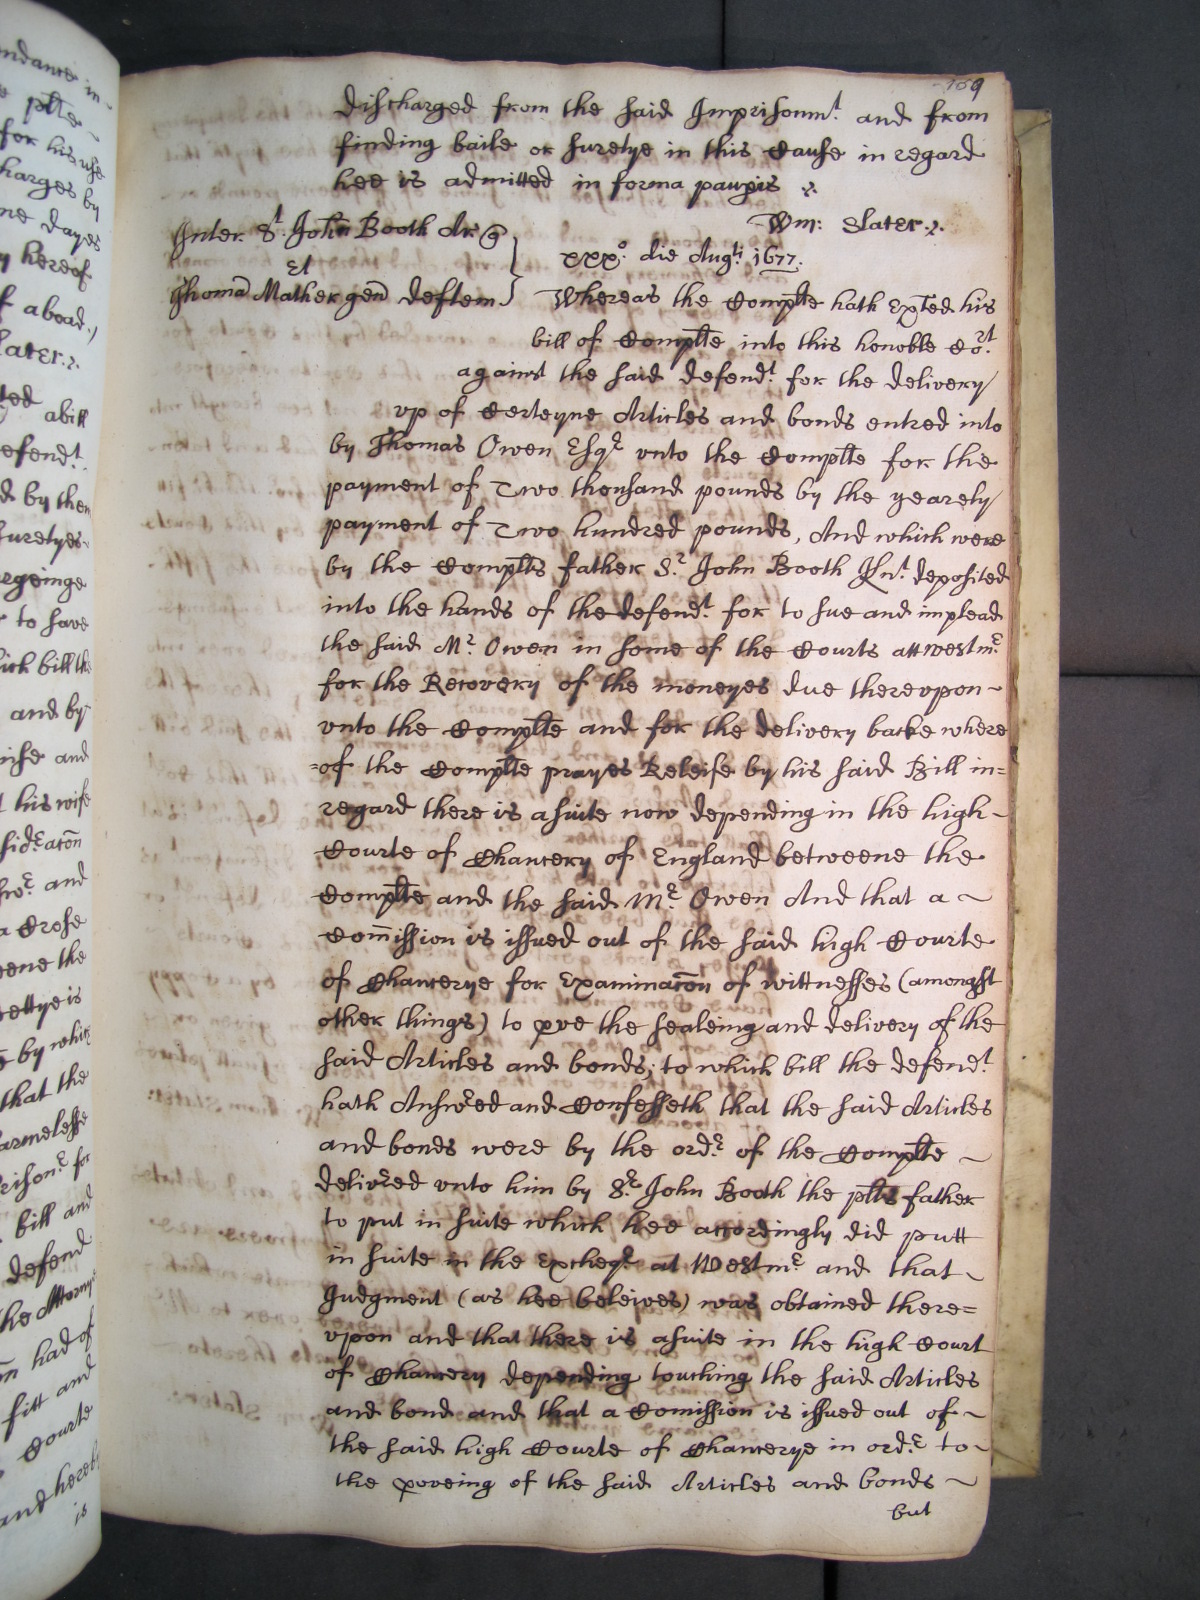 159
discharged from the said Imprisonmt. and from
finding baile or suretye in this Cause in regard
hee is admitted in forma paupis
Wm: Slater.
Inter Sr. John Booth Ar
Et
Thoma Mather gen deftem
xxxo. die Augti 1677.
Whereas the Complte hath Expted his
bill of Complte into this honoble Cort.
against the said defendt. for the delivery
vp of Certeyne Articles and bonds entred into
by Thomas Owen Esqr vnto the Complte for the
payment of Two thousand pounds by the yearely
payment of Two hundred pounds, And which were
by the Complts father Sr. John Booth Knt. deposited
into the hands of the defendt. for to sue and implead
the said Mr. Owen in some of the Courts att westmr
for the Recovery of the moneyes due therevpon
vnto the Complte and for the delivery backe where
=of the Complte prayes Releife by his said Bill in=
regard there is a suite now depending in the high
Courte of Chancery of England betweene the
Complte and the said Mr. Owen And that a
Comission is issued out of the said high Courte
of Chancerye for Examinacon of wittnesses (amongst
other things) to pve the sealeing and delivery of the
said Articles and bonds; to which bill the defendt.
hath Answred and Confesseth that the said Articles
and bonds were by the ordr. of the Complte
delivred vnto him by Sr. John Booth the plts father
to put in suite which hee accordingly did putt
in suite in the Excheqr at Westmr and that
Judgment (as hee beleives) was obtained there=
vpon and that there is a suite in the high Court
of Chancery depending touching the said Articles
and bond and that a Comission is issued out of
the said high Courte of Chancerye in ordr. to
the proveing of the said Articles and bonds
but